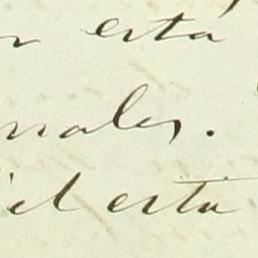 n está
nales.
el esta